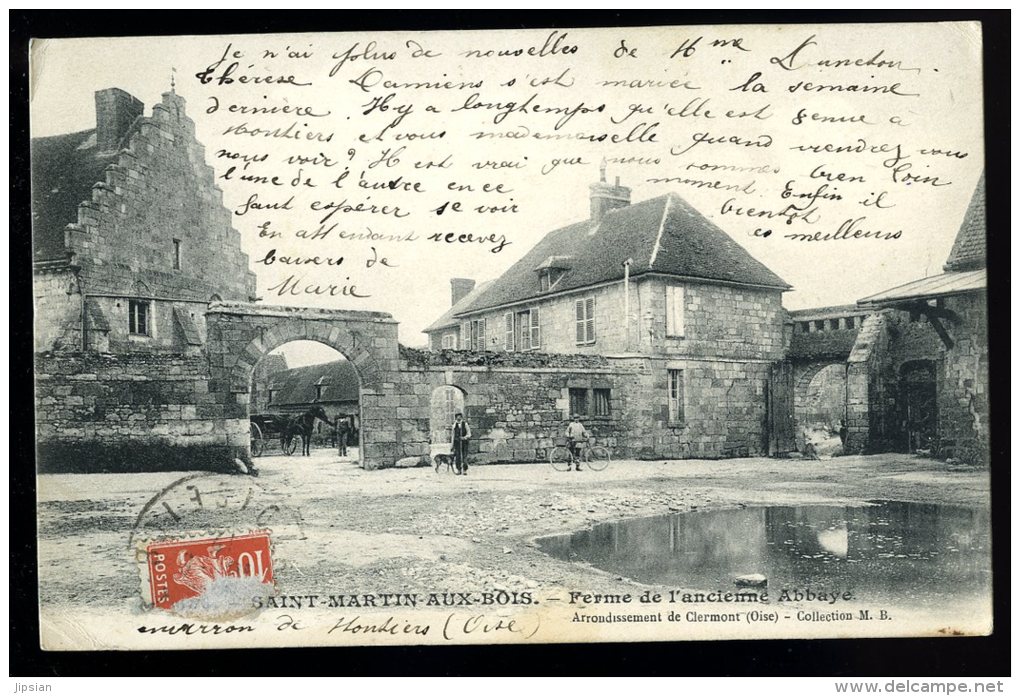 Je n'ai plus de nouvelles de Mme
Thérèse Damiens s'est mariée la semaine
dernière. Il y a longtemps qu'elle est venue a
Montiers et vous mademoiselle quand viendrez vous
nous voir? Il est vrai que nous sommes bien loin
l'une de l'autre en ce moment. Enfin il
faut espérer se voir bientot
En attendant recevez les meilleurs
baisers de
Marie
10
POSTES
SAINT-MARTIN-AUX-BOIS. – Ferme de l'ancienne Abbaye
Arrondissement de Clermont (Oise) – Collection M. B.
environ de Montiers (Oise)
jipsian
www.delcampe.net